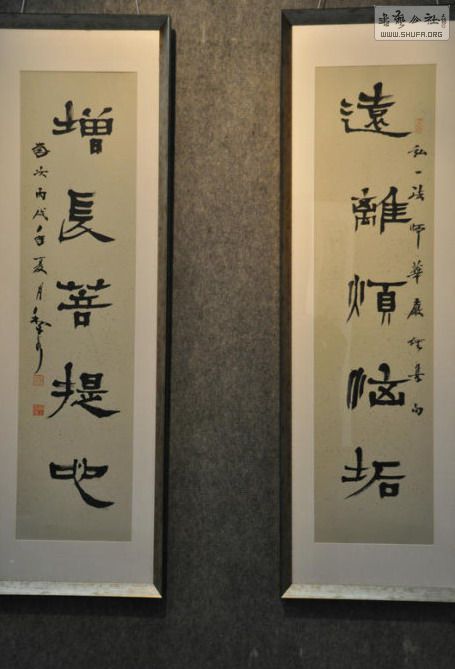 遠離煩惱垢
弘一法師華嚴經集句
增長菩提心
歲次丙戌年夏月
書藝公社
WWW.SHUFA.ORG